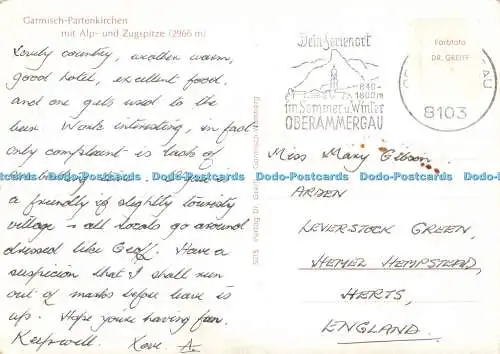 Garmisch-Partenkirchen
mit Alp- und Zugspitze (2966 m)
Lovely country, weather warm,
good hotel, excellent food,
and one gets used to the
beer. Work interesting, in fact
only complaint is lack of
is
a friendly if slightly touristy
village - all locals go around
dressed like Geoff. Have a
suspicion that I shall run
out of marks before leave is
up. Hope you're having fun.
Keep well. Love. A
5015 Verlag Dr. Greiff Garmisch
Dein Ferienort
840-
1800m
im Sommer u. Winter
OBERAMMERGAU
Farbfoto
DR. GREIFF
AU
8103
Miss Mary Gibson
ARDEN
LEVERSTOCK GREEN,
HEMEL HEMPSTEAD,
HERTS,
ENGLAND.
Data-Postcards Data-Postcards Data-Postcards Data-Postcards Data-Postcards